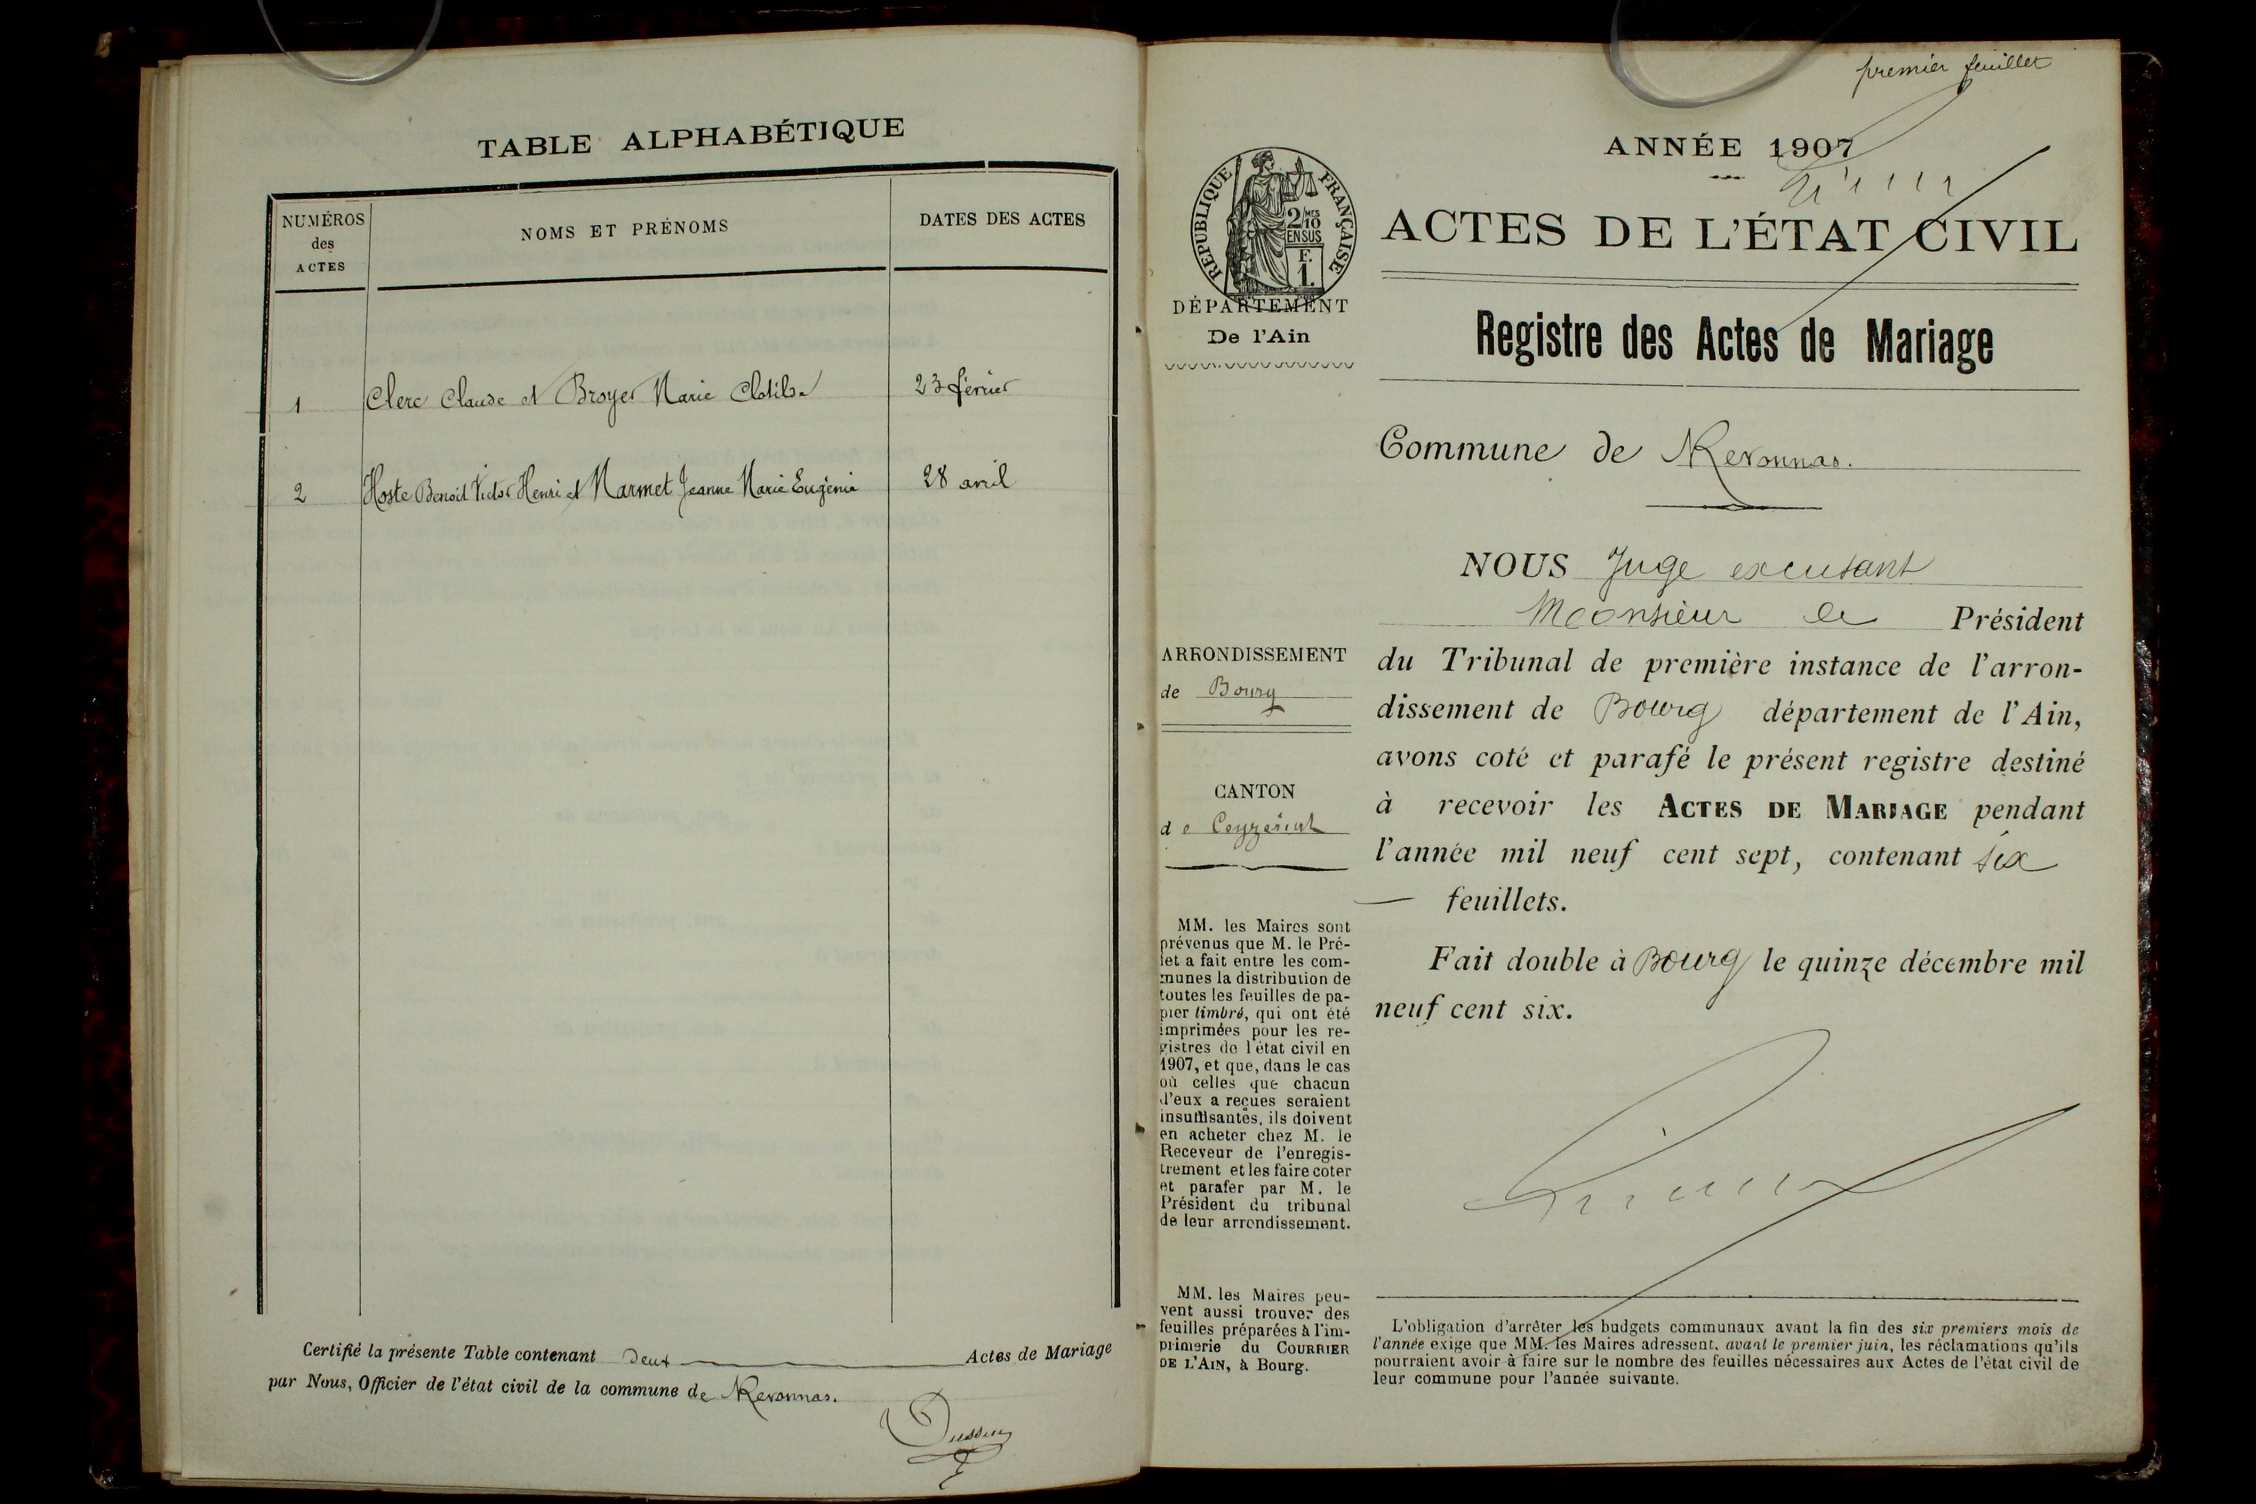 TABLE ALPHABÉTIQUE
NUMÉROS des ACTES
NOMS ET PRÉNOMS
DATES DES ACTES
1 Clerc Claude et Broyer Marie Clotilde 23 février
2 Hoste Benoit Victor Henri et Marmet Jeanne Marie Eugénie 28 avril
Certifié la présente Table contenant deux Actes de Mariage
par Nous, Officier de l'état civil de la commune de Revonnas.
premier feuillet
ANNÉE 1907
RÉPUBLIQUE FRANÇAISE
2/10 MES
EN SUS
F.
1.
ACTES DE L'ÉTAT CIVIL
DÉPARTEMENT
De l'Ain
Registre des Actes de Mariage
Commune de Revonnas.
NOUS Juge excusant
Monsieur le Président
ARRONDISSEMENT
de Bourg
du Tribunal de première instance de l'arron-
dissement de Bourg département de l'Ain,
avons coté et parafé le présent registre destiné
à recevoir les ACTES DE MARIAGE pendant
l'année mil neuf cent sept, contenant six
feuillets.
Fait double à Bourg le quinze décembre mil
neuf cent six.
CANTON
de Ceyzériat
MM. les Maires sont
prévenus que M. le Pré-
fet a fait entre les com-
munes la distribution de
toutes les feuilles de pa-
pier timbré, qui ont été
imprimées pour les re-
gistres de l'état civil en
1907, et que, dans le cas
où celles que chacun
d'eux a reçues seraient
insuffisantes, ils doivent
en acheter chez M. le
Receveur de l'enregis-
trement et les faire coter
et parafer par M. le
Président du tribunal
de leur arrondissement.
MM. les Maires peu-
vent aussi trouver des
feuilles préparées à l'im-
primerie du COURRIER
DE L'AIN, à Bourg.
L'obligation d'arrêter les budgets communaux avant la fin des six premiers mois de
l'année exige que MM. les Maires adressent, avant le premier juin, les réclamations qu'ils
pourraient avoir à faire sur le nombre des feuilles nécessaires aux Actes de l'état civil de
leur commune pour l'année suivante.